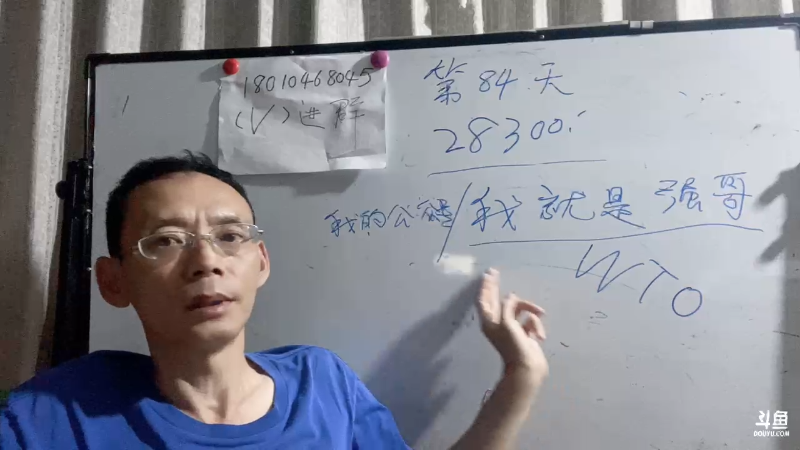 18010468045
(V)进群
第84天
28300.
我的公众号/我就是强哥
WTO
斗鱼
DOUYU.COM